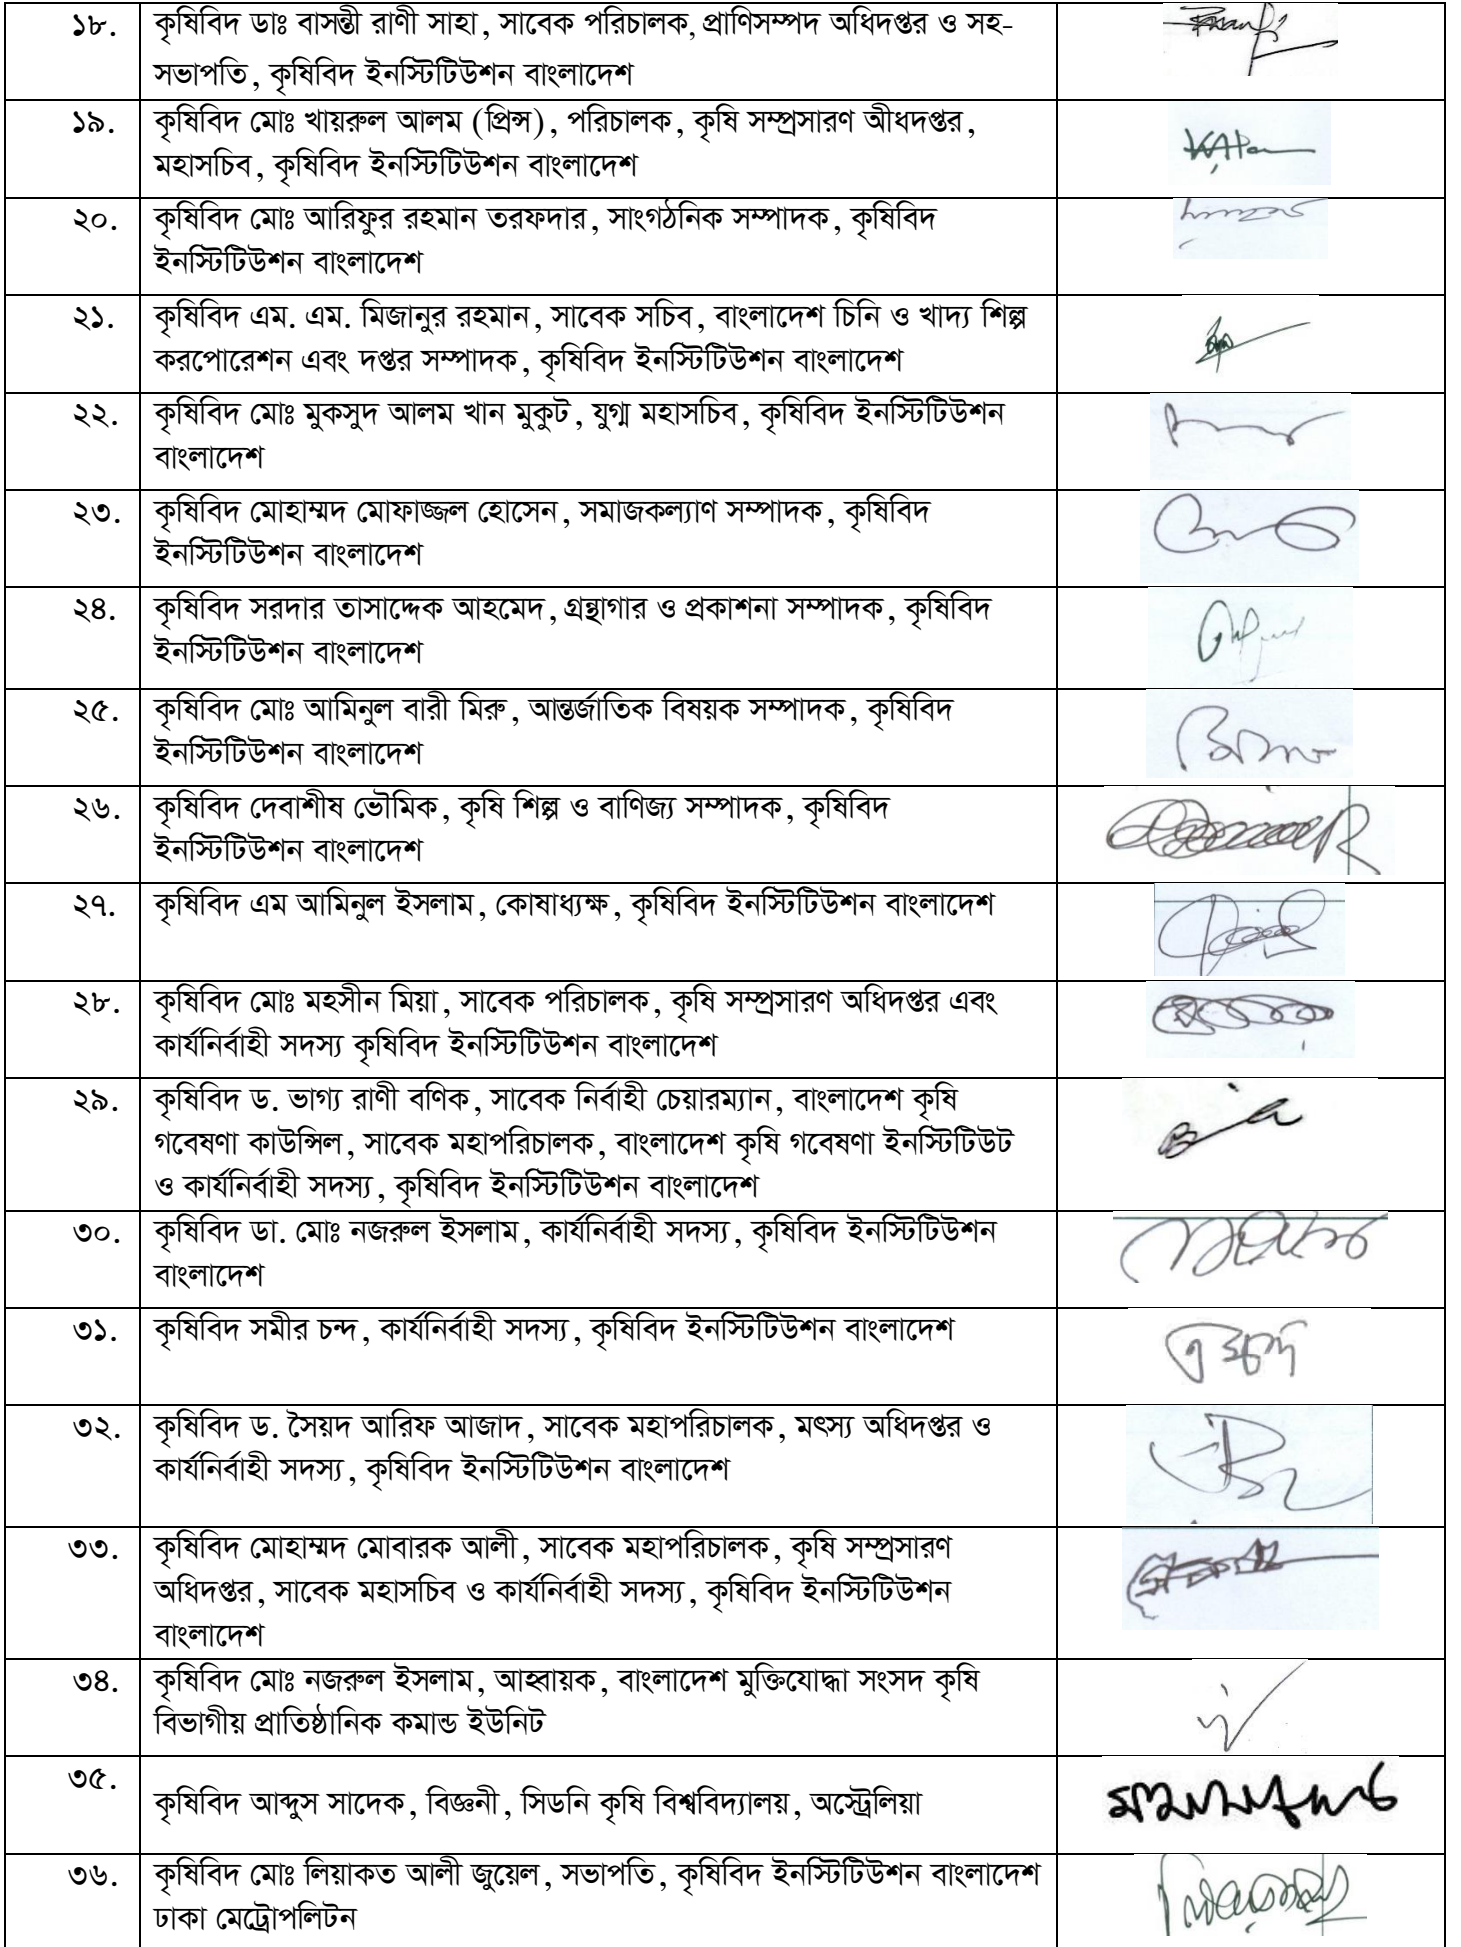 ১৮. কৃষিবিদ ডাঃ বাসন্তী রাণী সাহা, সাবেক পরিচালক, প্রাণিসম্পদ অধিদপ্তর ও সহ-
সভাপতি, কৃষিবিদ ইনস্টিটিউশন বাংলাদেশ
১৯. কৃষিবিদ মোঃ খায়রুল আলম (প্রিন্স), পরিচালক, কৃষি সম্প্রসারণ অীধদপ্তর,
মহাসচিব, কৃষিবিদ ইনস্টিটিউশন বাংলাদেশ
২০. কৃষিবিদ মোঃ আরিফুর রহমান তরফদার, সাংগঠনিক সম্পাদক, কৃষিবিদ
ইনস্টিটিউশন বাংলাদেশ
২১. কৃষিবিদ এম. এম. মিজানুর রহমান, সাবেক সচিব, বাংলাদেশ চিনি ও খাদ্য শিল্প
করপোরেশন এবং দপ্তর সম্পাদক, কৃষিবিদ ইনস্টিটিউশন বাংলাদেশ
২২. কৃষিবিদ মোঃ মুকসুদ আলম খান মুকুট, যুগ্ম মহাসচিব, কৃষিবিদ ইনস্টিটিউশন
বাংলাদেশ
২৩. কৃষিবিদ মোহাম্মদ মোফাজ্জল হোসেন, সমাজকল্যাণ সম্পাদক, কৃষিবিদ
ইনস্টিটিউশন বাংলাদেশ
২৪. কৃষিবিদ সরদার তাসাদ্দেক আহমেদ, গ্রন্থাগার ও প্রকাশনা সম্পাদক, কৃষিবিদ
ইনস্টিটিউশন বাংলাদেশ
২৫. কৃষিবিদ মোঃ আমিনুল বারী মিরু, আন্তর্জাতিক বিষয়ক সম্পাদক, কৃষিবিদ
ইনস্টিটিউশন বাংলাদেশ
২৬. কৃষিবিদ দেবাশীষ ভৌমিক, কৃষি শিল্প ও বাণিজ্য সম্পাদক, কৃষিবিদ
ইনস্টিটিউশন বাংলাদেশ
২৭. কৃষিবিদ এম আমিনুল ইসলাম, কোষাধ্যক্ষ, কৃষিবিদ ইনস্টিটিউশন বাংলাদেশ
২৮. কৃষিবিদ মোঃ মহসীন মিয়া, সাবেক পরিচালক, কৃষি সম্প্রসারণ অধিদপ্তর এবং
কার্যনির্বাহী সদস্য কৃষিবিদ ইনস্টিটিউশন বাংলাদেশ
২৯. কৃষিবিদ ড. ভাগ্য রাণী বণিক, সাবেক নির্বাহী চেয়ারম্যান, বাংলাদেশ কৃষি
গবেষণা কাউন্সিল, সাবেক মহাপরিচালক, বাংলাদেশ কৃষি গবেষণা ইনস্টিটিউট
ও কার্যনির্বাহী সদস্য, কৃষিবিদ ইনস্টিটিউশন বাংলাদেশ
৩০. কৃষিবিদ ডা. মোঃ নজরুল ইসলাম, কার্যনির্বাহী সদস্য, কৃষিবিদ ইনস্টিটিউশন
বাংলাদেশ
৩১. কৃষিবিদ সমীর চন্দ, কার্যনির্বাহী সদস্য, কৃষিবিদ ইনস্টিটিউশন বাংলাদেশ
৩২. কৃষিবিদ ড. সৈয়দ আরিফ আজাদ, সাবেক মহাপরিচালক, মৎস্য অধিদপ্তর ও
কার্যনির্বাহী সদস্য, কৃষিবিদ ইনস্টিটিউশন বাংলাদেশ
৩৩. কৃষিবিদ মোহাম্মদ মোবারক আলী, সাবেক মহাপরিচালক, কৃষি সম্প্রসারণ
অধিদপ্তর, সাবেক মহাসচিব ও কার্যনির্বাহী সদস্য, কৃষিবিদ ইনস্টিটিউশন
বাংলাদেশ
৩৪. কৃষিবিদ মোঃ নজরুল ইসলাম, আহ্বায়ক, বাংলাদেশ মুক্তিযোদ্ধা সংসদ কৃষি
বিভাগীয় প্রাতিষ্ঠানিক কমান্ড ইউনিট
৩৫. কৃষিবিদ আব্দুস সাদেক, বিজ্ঞনী, সিডনি কৃষি বিশ্ববিদ্যালয়, অস্ট্রেলিয়া
৩৬. কৃষিবিদ মোঃ লিয়াকত আলী জুয়েল, সভাপতি, কৃষিবিদ ইনস্টিটিউশন বাংলাদেশ
ঢাকা মেট্রোপলিটন